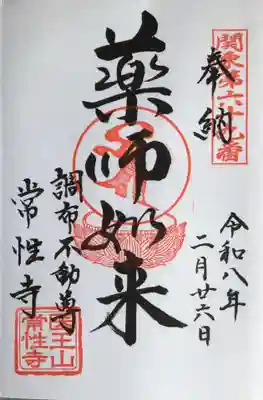 関東第六十九番
奉納
薬師如来
調布不動尊
常性寺
令和八年
二月廿六日
医王山
常性寺